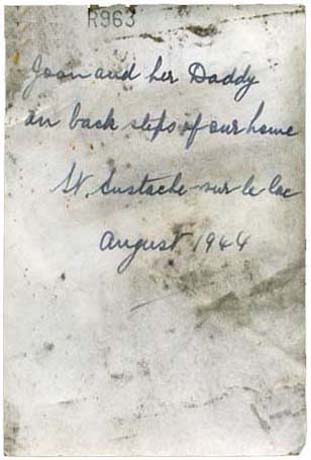 R963
Joan and her Daddy
on back steps of our home
St. Eustache-sur-le-lac
August 1944